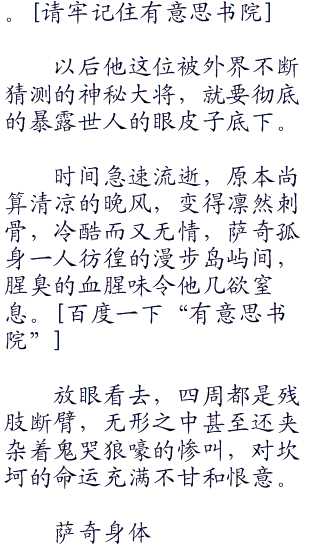 。[请牢记住有意思书院]
以后他这位被外界不断
猜测的神秘大将，就要彻底
的暴露世人的眼皮子底下。
时间急速流逝，原本尚
算清凉的晚风，变得凛然刺
骨，冷酷而又无情，萨奇孤
身一人彷徨的漫步岛屿间，
腥臭的血腥味令他几欲窒
息。[百度一下“有意思书
院”]
放眼看去，四周都是残
肢断臂，无形之中甚至还夹
杂着鬼哭狼嚎的惨叫，对坎
坷的命运充满不甘和恨意。
萨奇身体